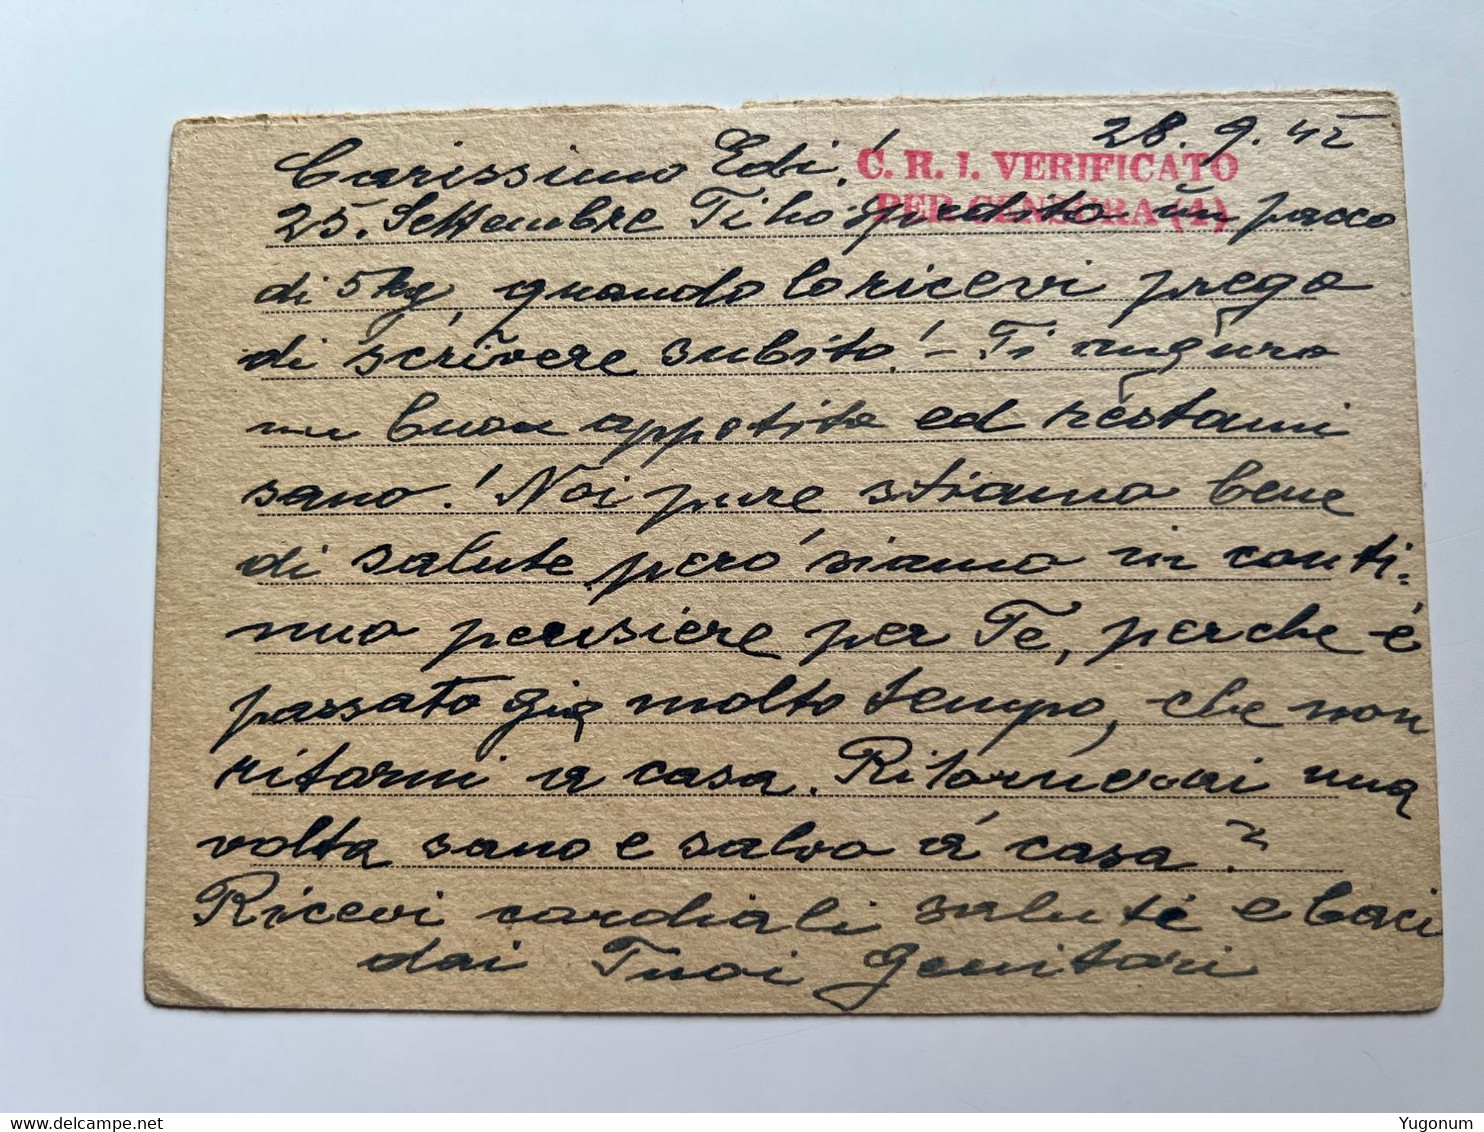 28. 9. 42
Carissimo Edi!
C. R. I. VERIFICATO
PER CENSURA (4)
25. Settembre Ti ho spedito un pacco
di 5 kg, quando lo ricevi prego
di scrivere subito! - Ti auguro
un buon appetito ed restami
sano! Noi pure stiamo bene
di salute però siamo in conti-
nuo pensiere per Te, perche è
passato gia molto tempo, che non
ritorni a casa. Ritornerai una
volta sano e salvo á casa?
Ricevi cordiali saluti e baci
dai Tuoi genitori
delcampe.net
Yugonum